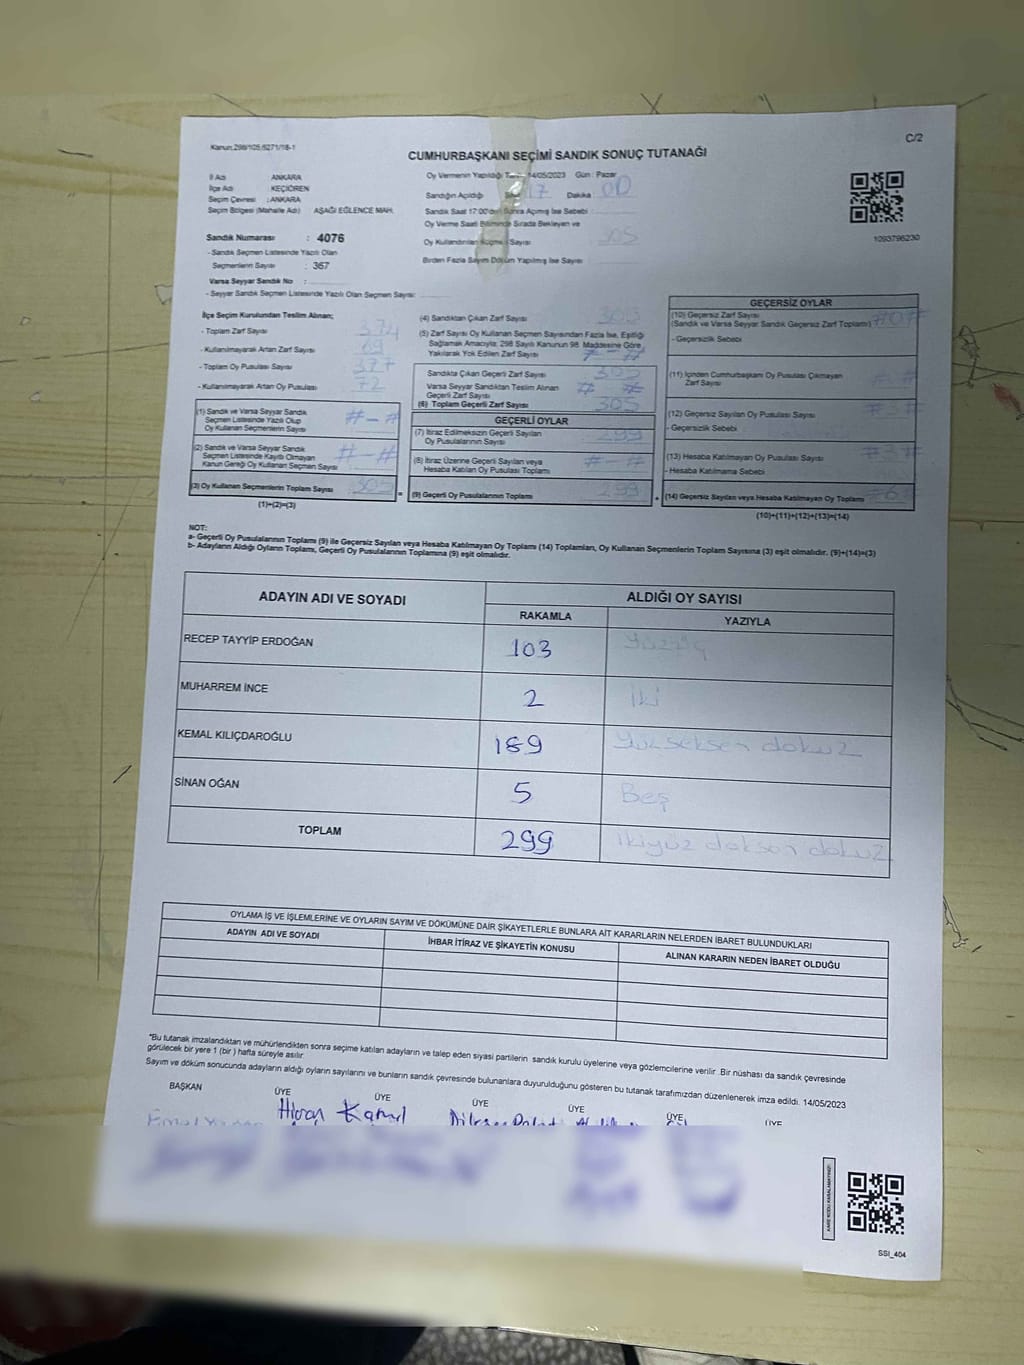 Kanun:298/105,6271/18-1
C/2
CUMHURBAŞKANI SEÇİMİ SANDIK SONUÇ TUTANAĞI
İl Adı : ANKARA
İlçe Adı : KEÇİÖREN
Seçim Çevresi : ANKARA
Seçim Bölgesi (Mahalle Adı) : AŞAĞI EĞLENCE MAH.
Sandık Numarası : 4076
- Sandık Seçmen Listesinde Yazılı Olan
Seçmenlerin Sayısı : 367
Varsa Seyyar Sandık No :
- Seyyar Sandık Seçmen Listesinde Yazılı Olan Seçmen Sayısı:
Oy Vermenin Yapıldığı 14/05/2023 Gün : Pazar
Sandığın Açıldığı 17 Dakika : 00
Sandık Saat 17:00'den Sonra Açımış İse Sebebi :
Oy Verme Saati Bitiminde Sırada Bekleyen ve
Oy Kullandırılan Seçmen Sayısı 305
Birden Fazla Sayım Döküm Yapılmış İse Sayısı :
1093796230
İlçe Seçim Kurulundan Teslim Alınan;
- Toplam Zarf Sayısı : 374
- Kullanılmayarak Artan Zarf Sayısı : 69
- Toplam Oy Pusulası Sayısı : 377
- Kullanılmayarak Artan Oy Pusulası : 72
(1) Sandık ve Varsa Seyyar Sandık
Seçmen Listesinde Yazılı Olup
Oy Kullanan Seçmenlerin Sayısı : #-#
(2) Sandık ve Varsa Seyyar Sandık
Seçmen Listesinde Kayıtlı Olmayan
Kanun Gereği Oy Kullanan Seçmen Sayısı : #-#
(3) Oy Kullanan Seçmenlerin Toplam Sayısı : 305
(1)+(2)=(3)
(4) Sandıktan Çıkan Zarf Sayısı : 305
(5) Zarf Sayısı Oy Kullanan Seçmen Sayısından Fazla İse, Eşitliği
Sağlamak Amacıyla; 298 Sayılı Kanunun 98. Maddesine Göre
Yakılarak Yok Edilen Zarf Sayısı : #-#
Sandıkta Çıkan Geçerli Zarf Sayısı : 305
Varsa Seyyar Sandıktan Teslim Alınan
Geçerli Zarf Sayısı : # #
(6) Toplam Geçerli Zarf Sayısı : 305
GEÇERLİ OYLAR
(7) İtiraz Edilmeksizin Geçerli Sayılan
Oy Pusulalarının Sayısı : 299
(8) İtiraz Üzerine Geçerli Sayılan veya
Hesaba Katılan Oy Pusulası Toplamı : #-#
= (9) Geçerli Oy Pusulalarının Toplamı : 299
GEÇERSİZ OYLAR
(10) Geçersiz Zarf Sayısı
(Sandık ve Varsa Seyyar Sandık Geçersiz Zarf Toplamı) : #0#
- Geçersizlik Sebebi :
(11) İçinden Cumhurbaşkanı Oy Pusulası Çıkmayan
Zarf Sayısı
(12) Geçersiz Sayılan Oy Pusulası Sayısı : #3#
- Geçersizlik Sebebi :
(13) Hesaba Katılmayan Oy Pusulası Sayısı : #3#
- Hesaba Katılmama Sebebi :
+ (14) Geçersiz Sayılan veya Hesaba Katılmayan Oy Toplamı : #6#
(10)+(11)+(12)+(13)=(14)
NOT:
a- Geçerli Oy Pusulalarının Toplamı (9) ile Geçersiz Sayılan veya Hesaba Katılmayan Oy Toplamı (14) Toplamları, Oy Kullanan Seçmenlerin Toplam Sayısına (3) eşit olmalıdır. (9)+(14)=(3)
b- Adayların Aldığı Oyların Toplamı, Geçerli Oy Pusulalarının Toplamına (9) eşit olmalıdır.
ADAYIN ADI VE SOYADI
ALDIĞI OY SAYISI
RAKAMLA
YAZIYLA
RECEP TAYYİP ERDOĞAN 103 Yüzüç
MUHARREM İNCE 2 İki
KEMAL KILIÇDAROĞLU 189 Yüzseksen dokuz
SİNAN OĞAN 5 Beş
TOPLAM 299 İkiyüz doksan dokuz
OYLAMA İŞ VE İŞLEMLERİNE VE OYLARIN SAYIM VE DÖKÜMÜNE DAİR ŞİKAYETLERLE BUNLARA AİT KARARLARIN NELERDEN İBARET BULUNDUKLARI
ADAYIN ADI VE SOYADI
İHBAR İTİRAZ VE ŞİKAYETİN KONUSU
ALINAN KARARIN NEDEN İBARET OLDUĞU
*Bu tutanak imzalandıktan ve mühürlendikten sonra seçime katılan adayların ve talep eden siyasi partilerin sandık kurulu üyelerine veya gözlemcilerine verilir .Bir nüshası da sandık çevresinde
görülecek bir yere 1 (bir ) hafta süreyle asılır.
Sayım ve döküm sonucunda adayların aldığı oyların sayılarını ve bunların sandık çevresinde bulunanlara duyurulduğunu gösteren bu tutanak tarafımızdan düzenlenerek imza edildi. 14/05/2023
BAŞKAN ÜYE ÜYE ÜYE ÜYE ÜYE ÜYE
SSI_404